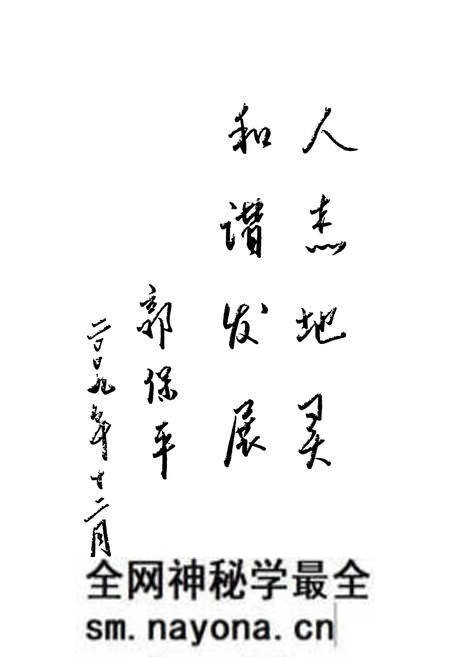 人杰地灵
和谐发展
郭保平
二〇〇九年十二月
全网神秘学最全
sm.nayona.cn